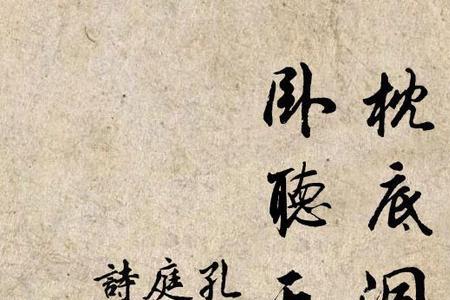 枕底洞
卧聽
孔
庭
詩